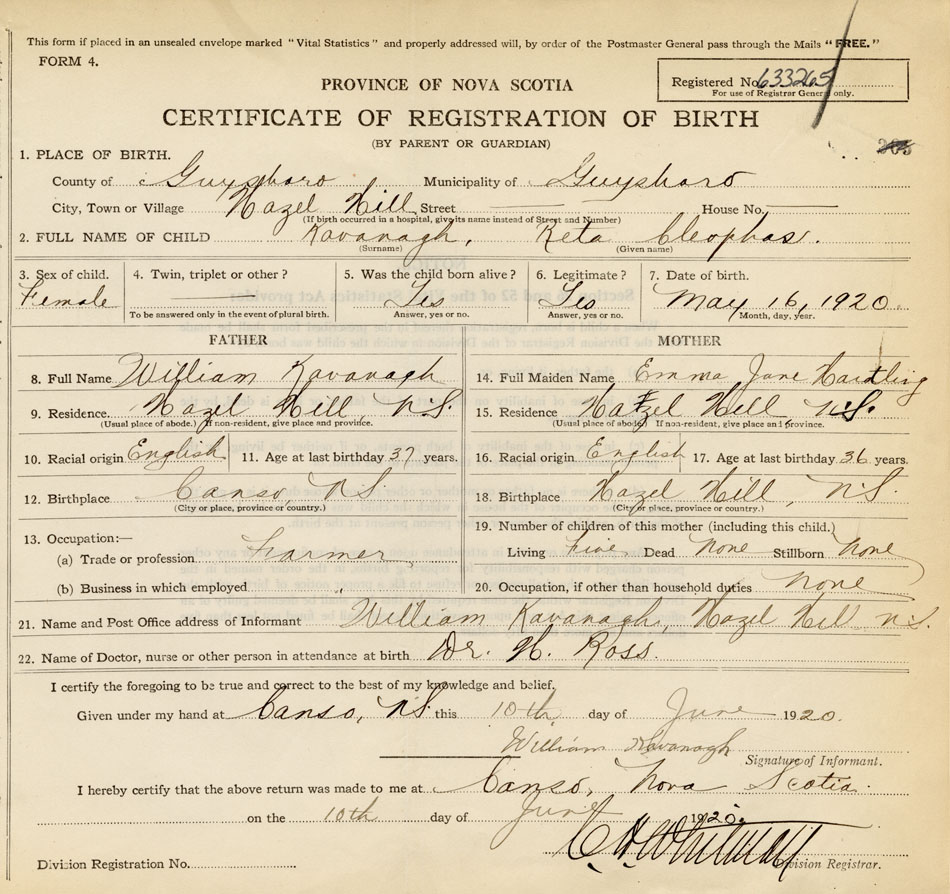 This form if placed in an unsealed envelope marked "Vital Statistics" and properly addressed will, by order of the Postmaster General pass through the Mails "FREE."
FORM 4.
Registered No. 633265
For use of Registrar General only.
PROVINCE OF NOVA SCOTIA
CERTIFICATE OF REGISTRATION OF BIRTH
(BY PARENT OR GUARDIAN)
1. PLACE OF BIRTH.
County of Guysboro Municipality of Guysboro
City, Town or Village Hazel Hill Street House No.
(If birth occurred in a hospital, give its name instead of Street and Number)
2. FULL NAME OF CHILD Kavanagh, Reta Cleophas.
(Surname) (Given name)
3. Sex of child. 4. Twin, triplet or other? 5. Was the child born alive? 6. Legitimate? 7. Date of birth.
Female Yes Yes May 16, 1920
To be answered only in the event of plural birth. Answer, yes or no. Answer, yes or no. Month, day, year.
FATHER MOTHER
8. Full Name William Kavanagh 14. Full Maiden Name Emma Jane Hartling
9. Residence. Hazel Hill, N.S. 15. Residence Hazel Hill N.S.
(Usual place of abode.) If non-resident, give place and province. (Usual place of abode.) If non-resident, give place and province.
10. Racial origin English 11. Age at last birthday 37 years. 16. Racial origin English 17. Age at last birthday 36 years.
12. Birthplace Canso, N.S. 18. Birthplace Hazel Hill, N.S.
(City or place, province or country.) (City or place, province or country.)
13. Occupation:— 19. Number of children of this mother (including this child.)
(a) Trade or profession Farmer Living Five Dead None Stillborn None
(b) Business in which employed " 20. Occupation, if other than household duties None
21. Name and Post Office address of Informant William Kavanagh, Hazel Hill N.S.
22. Name of Doctor, nurse or other person in attendance at birth Dr. H. Ross.
I certify the foregoing to be true and correct to the best of my knowledge and belief.
Given under my hand at Canso, N.S. this 10th day of June 1920.
William Kavanagh
Signature of Informant.
I hereby certify that the above return was made to me at Canso, Nova Scotia.
on the 10th day of June 1920.
Division Registration No. Division Registrar.